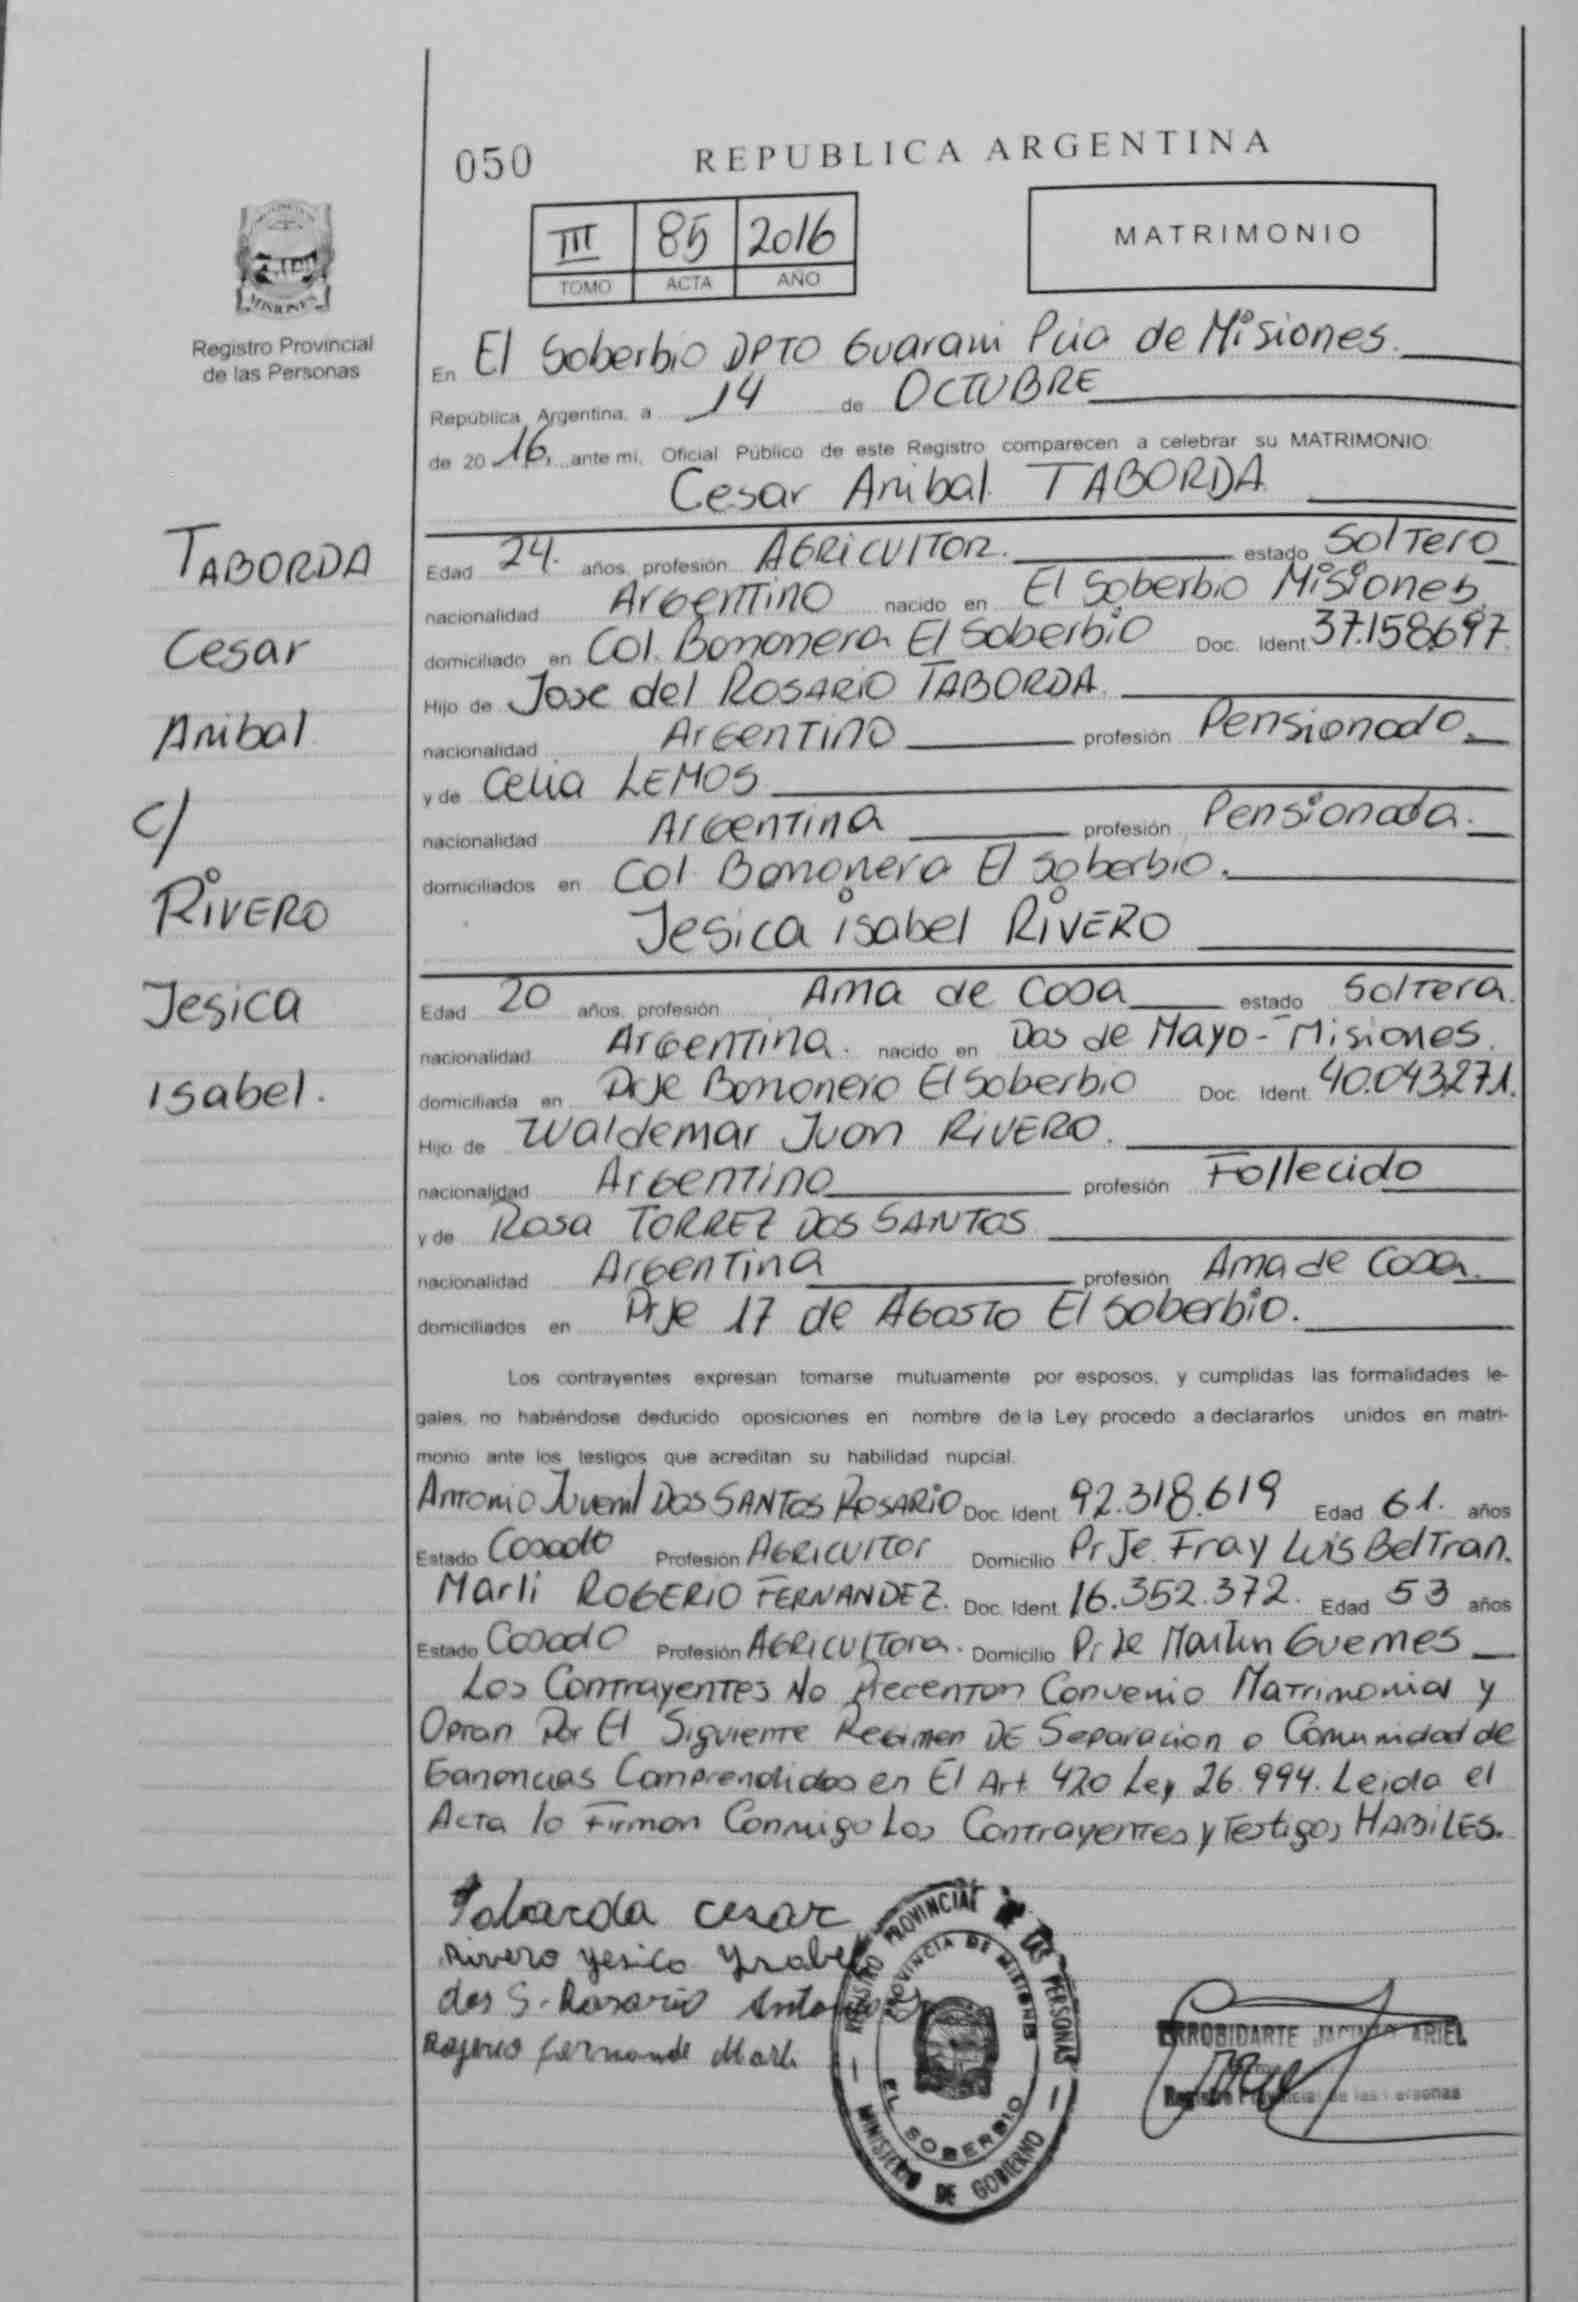 050 REPUBLICA ARGENTINA
III 85 2016
TOMO ACTA AÑO
MATRIMONIO
MISIONES
Registro Provincial
de las Personas
En El Soberbio DPTO Guarani Pcia de Misiones.
República Argentina, a 14 de OCTUBRE
de 2016, ante mi, Oficial Público de este Registro comparecen a celebrar su MATRIMONIO:
Cesar Anibal TABORDA
TABORDA
Cesar
Anibal
c/
RIVERO
Jesica
isabel.
Edad 24. años, profesión AGRICULTOR. estado SolTero
nacionalidad ArgenTino nacido en El Soberbio Misiones.
domiciliado en Col. Bononera El Soberbio Doc. Ident. 37.158.697.
Hijo de Jose del ROSARIO TABORDA.
nacionalidad ArgenTino profesión Pensionado.
y de Celia LEMOS
nacionalidad ArgenTina profesión Pensionada.
domiciliados en Col Bononera El Soberbio.
Jesica isabel RIVERO
Edad 20 años, profesión Ama de Casa estado SolTera.
nacionalidad ArgenTina. nacido en Dos de Mayo - Misiones.
domiciliada en PrJe Bononero El Soberbio Doc. Ident. 40.043.271.
Hijo de Waldemar Juan RIVERO.
nacionalidad ArgenTino profesión Fallecido
y de Rosa TORREZ DOS SANTOS
nacionalidad ArgenTina profesión Ama de Casa.
domiciliados en PrJe 17 de AGOSTO El Soberbio.
Los contrayentes expresan tomarse mutuamente por esposos, y cumplidas las formalidades le-
gales, no habiéndose deducido oposiciones en nombre de la Ley procedo a declararlos unidos en matri-
monio ante los testigos que acreditan su habilidad nupcial.
Antonio Juvenil DOS SANTOS ROSARIO Doc. Ident. 92.318.619 Edad 61. años
Estado Casado Profesión AGRICULTOR Domicilio PrJe Fray Luis BelTran.
Marli ROGERIO FERNANDEZ. Doc. Ident. 16.352.372. Edad 53 años
Estado Casado Profesión AGRICULTora. Domicilio PrJe Martin Guemes
Los ContrayenTes No PrecenTan Convenio MaTrimonial y
OpTan Por El SiguienTe Regimen DE Separacion o Comunidad de
Ganancias Comprendidas en El Art 420 Ley 26.994. Leida el
Acta lo Firman Conmigo Los ContrayenTes y Testigos HABILES.
Taborda cesar
Rivero yesica ysabel
dos S. Rosario Antonio
Rogerio fernande Marli
REGISTRO PROVINCIAL DE LAS PERSONAS
PROVINCIA DE MISIONES
EL SOBERBIO
MINISTERIO DE GOBIERNO
ERROBIDARTE JACINTO ARIEL
Registro Provincial de las Personas